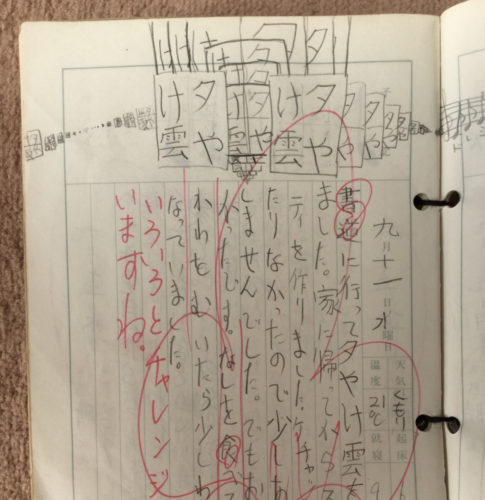 夕や
け雲
夕や
け雲
九月十一日水曜日
天気 くもり 起床
温度 21℃ 就寝 9
書道に行って夕やけ雲を
ました。家に帰ってから
ティを作りました。ケチャッ
たりなかったので少しあ
しませんでした。でもお
かったです。なしを食べて
かわをむいたら少しわ
なっていました。
いろいろとチャレンジ
いますね。